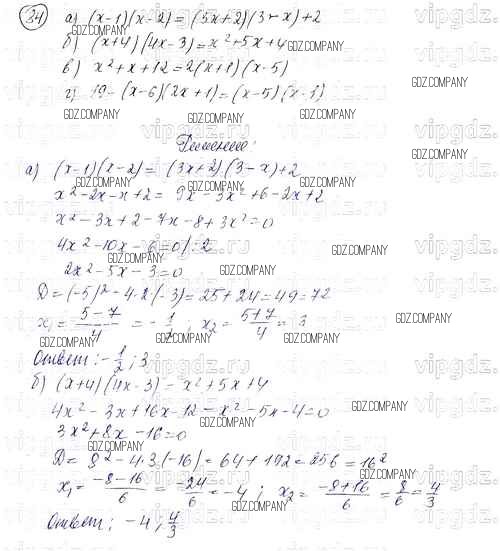 34) а) (x-1)(x-2) = (3x+2)(3-x)+2
б) (x+4)(4x-3) = x²+5x+4
в) x²+x+12 = 2(x+1)(x-5)
г) 19-(x-6)(2x+1) = (x-5)(x-1)
Решение:
а) (x-1)(x-2) = (3x+2)(3-x)+2
x²-2x-x+2 = 9x-3x²+6-2x+2
x²-3x+2-7x-8+3x²=0
4x²-10x-6=0/:2
2x²-5x-3=0
D=(-5)²-4·2(-3)=25+24=49=7²
x₁ = (5-7)/4 = -1/2 ; x₂ = (5+7)/4 = 3
Ответ: -1/2 ; 3
б) (x+4)(4x-3) = x²+5x+4
4x²-3x+16x-12-x²-5x-4=0
3x²+8x-16=0
D=8²-4·3(-16)=64+192=256=16²
x₁ = (-8-16)/6 = -24/6 = -4 ; x₂ = (-8+16)/6 = 8/6 = 4/3
Ответ: -4 ; 4/3
GDZ.COMPANY
vipgdz.ru